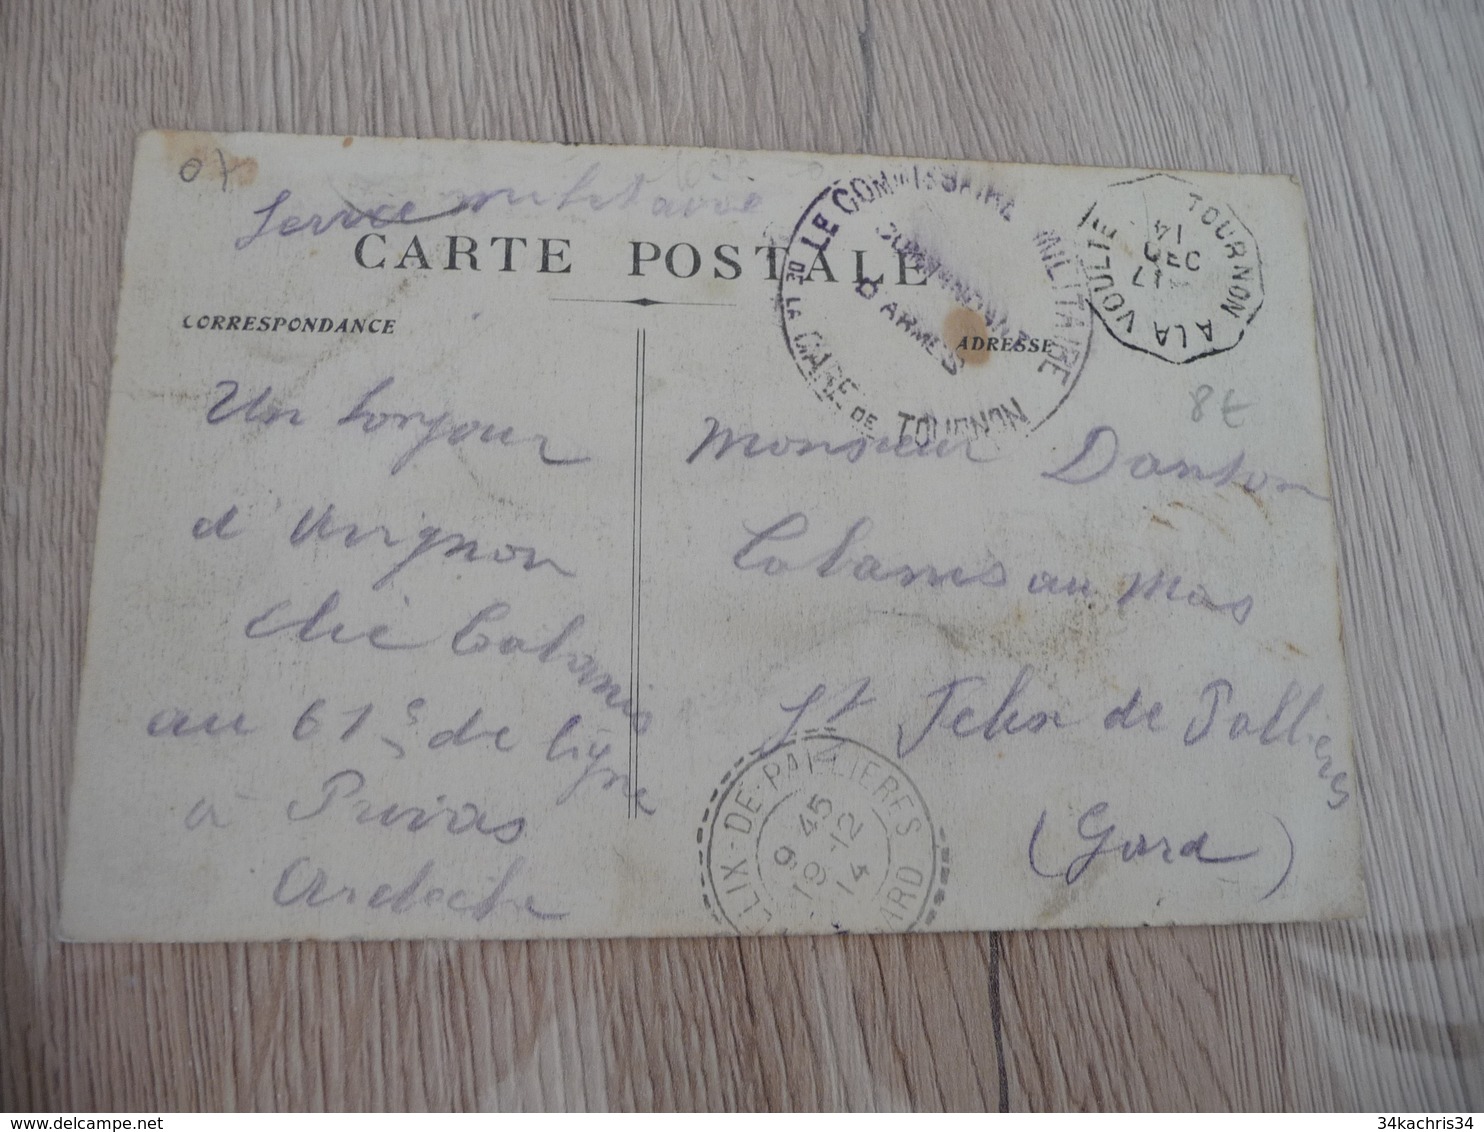 07
Service militaire
CARTE POSTALE
LE COMMISSAIRE MILITAIRE
DE LA GARE DE TOURNON
COMMANDANT
D'ARMES
TOURNON A LA VOULTE
17
DEC
14
CORRESPONDANCE
ADRESSE
8€
Un bonjour
d'Avignon
Elie Cabanis
au 61e de ligne
à Privas
Ardèche
Monsieur Danton
Cabanis au Mas
St Felix de Pallieres
(Gard)
LIX-DE-PALLIERES
9 45
19-12
14
GARD
34kachris34